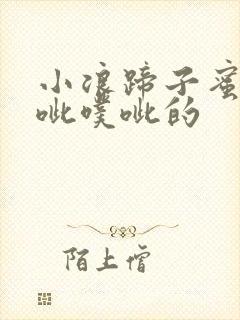 小浪蹄子蜜
呲噗呲的
陌上僧